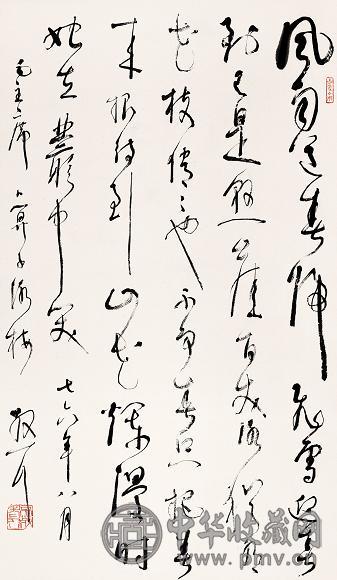 風雨送春归飞雪迎春
到已是悬崖百丈冰犹有
花枝俏〻也不争春只把春
来报待到山花爛漫时
她在叢中笑 七六年八月
毛主席卜算子咏梅 散耳
中华收藏网
www.pmv.cn